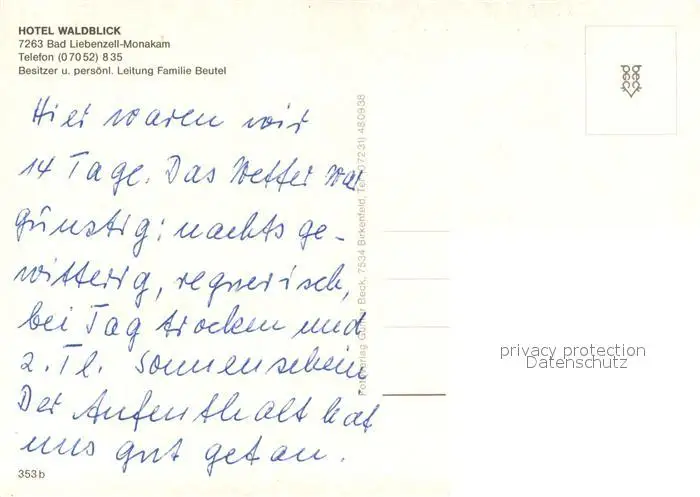 HOTEL WALDBLICK
7263 Bad Liebenzell-Monakam
Telefon (07052) 835
Besitzer u. persönl. Leitung Familie Beutel
Hier waren wir
14 Tage. Das Wetter war
günstig: nachts ge-
witterig, regnerisch,
bei Tag trocken und
z. Tl. Sonnenschein
Der Aufenthalt hat
uns gut getan.
353b
Fotoverlag Günter Beck, 7534 Birkenfeld, Tel. (07231) 480938
privacy protection
Datenschutz